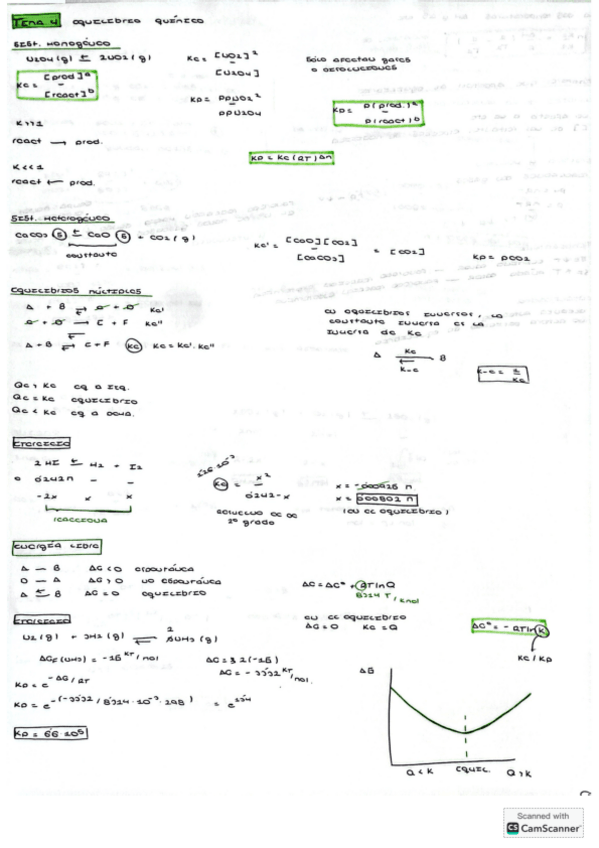 TEMA 4 EQUILIBRIO QUÍMICO
SIST. HOMOGÉNEO
N2O4 (g) ⇆ 2NO2 (g)
Kc = [NO2]² / [N2O4]
Sólo afectan gases
o disoluciones
Kc = [prod.]ᵃ / [react.]ᵇ
Kp = PpNO2² / PpN2O4
Kp = P(prod.)ᵃ / P(react.)ᵇ
K>>1
react → prod.
Kp = Kc (RT)^Δn
K<<1
react ← prod.
SIST. HETEROGÉNEO
CaCO3 (s) ⇆ CaO (s) + CO2 (g)
constante
Kc' = [CaO][CO2] / [CaCO3] = [CO2]
Kp = PCO2
EQUILIBRIOS MÚLTIPLES
A + B ⇄ C + D Kc'
C + D ⇄ E + F Kc''
A + B ⇄ E + F Kc Kc = Kc' · Kc''
En equilibrios inversos, la
constante inversa es la
inversa de Kc
A Kc ⇄ K-c B
K-c = 1/Kc
Qc > Kc eq a izq.
Qc = Kc equilibrio
Qc < Kc eq a dcha.
EJERCICIO
2HI ⇆ H2 + I2
-2x x x
reacciona
Kc = x² / 0'242-x
x =
(en el equilibrio)
2º grado
ENERGÍA LIBRE
A → B ΔG < 0 espontánea
B → A ΔG > 0 no espontánea
A ⇆ B ΔG = 0 equilibrio
ΔG = ΔG° + RT ln Q
8'314 J/K mol
EJERCICIO
en el equilibrio
ΔG = 0 Kc = Q
ΔG° = - RT ln K
Kc / Kp
N2 (g) + 3H2 (g) ⇄ 2NH3 (g)
ΔGf (NH3) = -16 KJ/mol
ΔG = -33'32 KJ/mol
Kp = e^(-ΔG/RT)
Kp = e^(-(-33'32 / 8'314·10⁻³·298)) = e^13'4
Kp = 6'6·10⁵
ΔG
Q < K EQUIL. Q > K
Scanned with
CS CamScanner